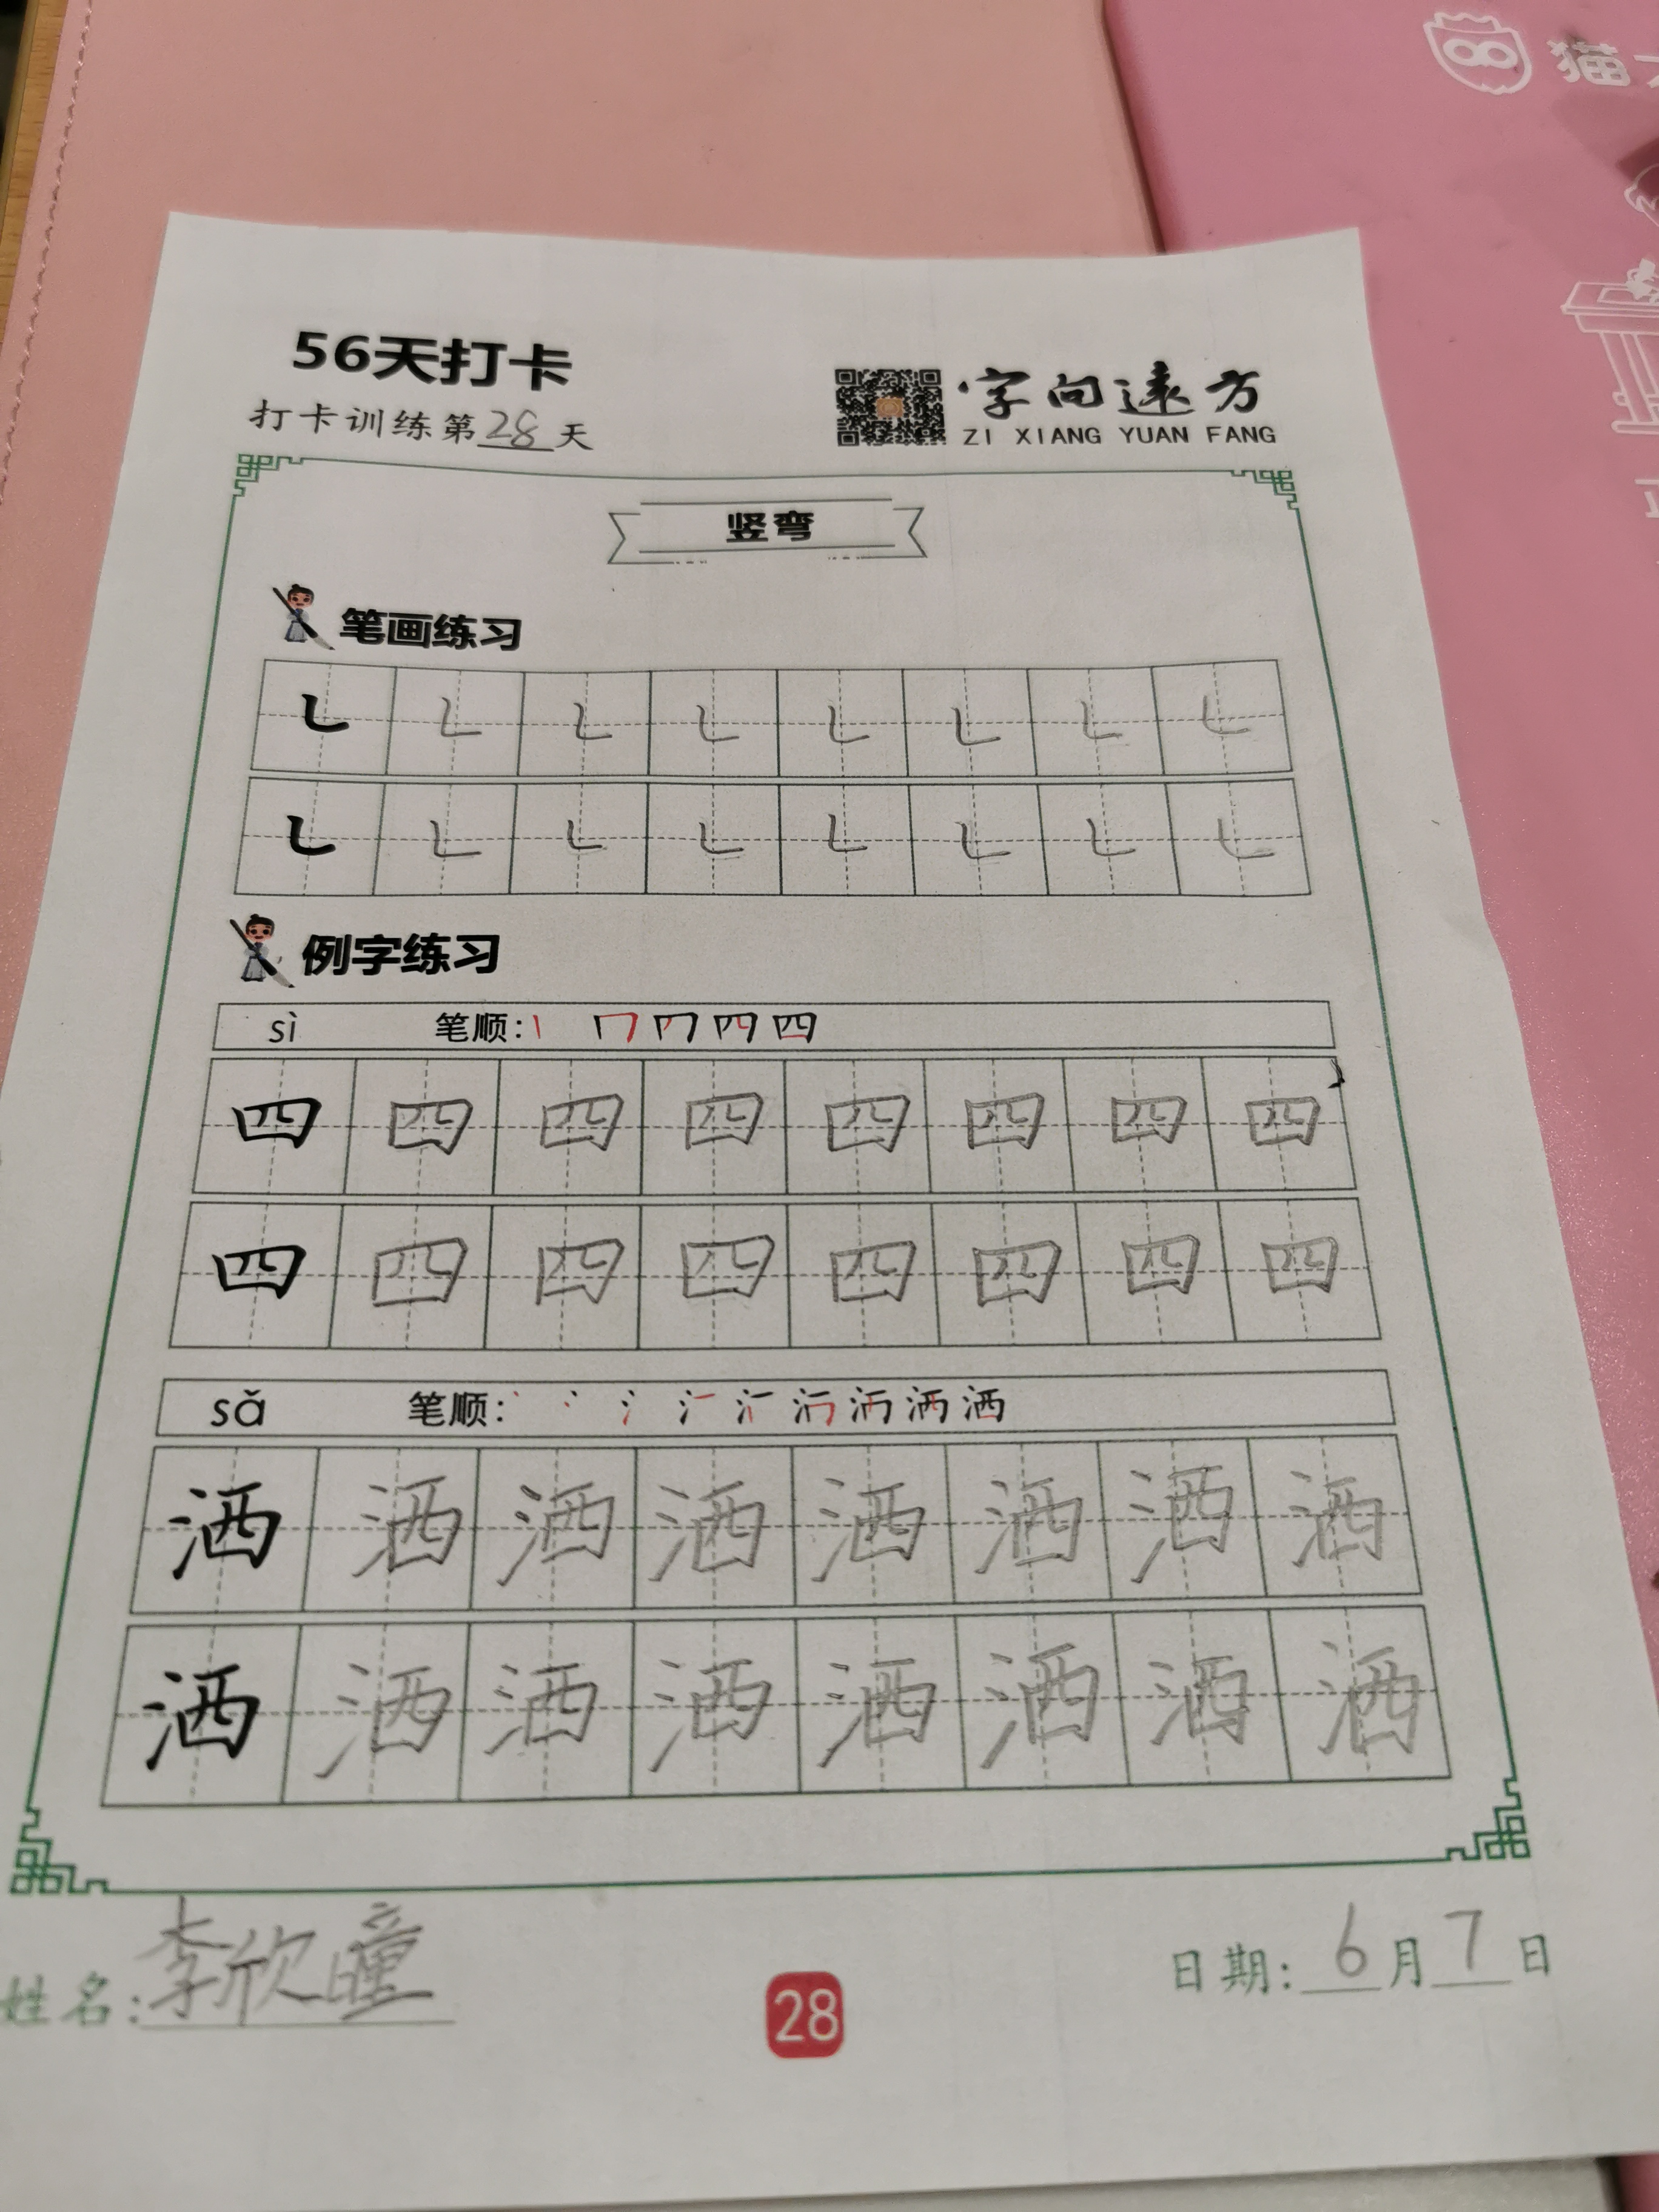 猫
56天打卡
打卡训练第28天
字向远方
ZI XIANG YUAN FANG
竖弯
笔画练习
㇄ ㇄ ㇄ ㇄ ㇄ ㇄ ㇄ ㇄
㇄ ㇄ ㇄ ㇄ ㇄ ㇄ ㇄ ㇄
例字练习
sì 笔顺: 四
四 四 四 四 四 四 四 四
四 四 四 四 四 四 四 四
sǎ 笔顺: 洒
洒 洒 洒 洒 洒 洒 洒 洒
洒 洒 洒 洒 洒 洒 洒 洒
姓名:李欣瞳
28
日期:6月7日